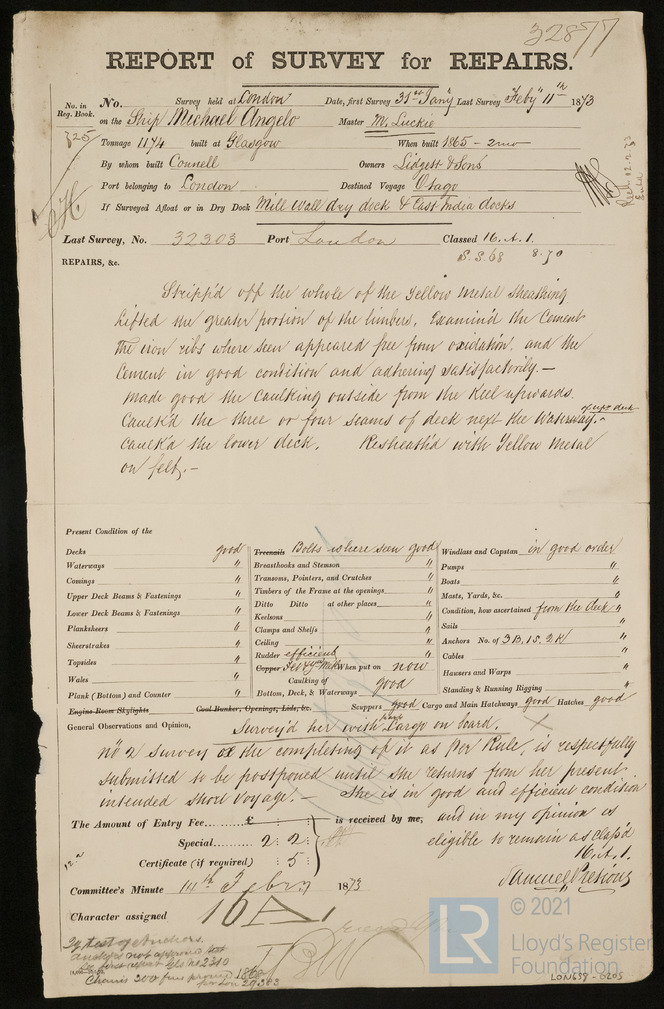 32877
REPORT of SURVEY for REPAIRS.
No. in Reg. Book. No. Survey held at London Date, first Survey 31st Jany Last Survey Feby 11th 1873
725 on the Ship Michael Angelo Master M. Luckie
Tonnage 1174 built at Glasgow When built 1865 - 2mo
By whom built Connell Owners Lidgett & Sons
Port belonging to London Destined Voyage Otago
If Surveyed Afloat or in Dry Dock Mill wall dry dock & East India docks
Last Survey, No. 32303 Port London Classed 16. A. 1.
S.S. 68 8.70
REPAIRS, &c.
Stripp'd off the whole of the Yellow metal sheathing
Lifted the greater portion of the limbers, Examin'd the Cement
the iron ribs where seen appeared free from oxidation, and the
Cement in good condition and adhering satisfactorily.—
made good the Caulking outside from the Keel upwards.
Caulk'd the three or four seams of deck next the Waterway of upr deck.-
Caulk'd the lower deck. Resheath'd with Yellow metal
on felt.—
Present Condition of the
Decks good
Waterways "
Comings "
Upper Deck Beams & Fastenings "
Lower Deck Beams & Fastenings "
Planksheers "
Sheerstrakes "
Topsides "
Wales "
Plank (Bottom) and Counter "
Engine Room Skylights Coal Bunker, Openings, Lids, &c.
Treenails Bolts where seen good
Breasthooks and Stemson "
Transoms, Pointers, and Crutches "
Timbers of the Frame at the openings "
Ditto Ditto at other places "
Keelsons "
Clamps and Shelfs "
Ceiling "
Rudder efficient
Copper Felt & Y. Metl When put on now
Caulking of Bottom, Deck, & Waterways good
Windlass and Capstan in good order
Pumps "
Boats "
Masts, Yards, &c. "
Condition, how ascertained from the deck "
Sails "
Anchors No. of 3B. 1S. 2K "
Cables "
Hausers and Warps "
Standing & Running Rigging "
Scuppers good Cargo and Main Hatchways good Hatches good
General Observations and Opinion, Survey'd her with part Cargo on board.
No 2 survey or the completing of it as Per Rule, is respectfully
submitted to be postponed until she returns from her present
intended short Voyage.— She is in good and efficient condition
The Amount of Entry Fee...... £ : : is received by me, and in my opinion is
Special...... 2 : 2 : eligible to remain as class'd
Certificate (if required) : 5 : 16. A. 1.
Samuel Pretious
Committee's Minute 14th Feby 1873
Character assigned 16 A 1
© 2021
LR
Lloyd's Register
Foundation
LON659-0205